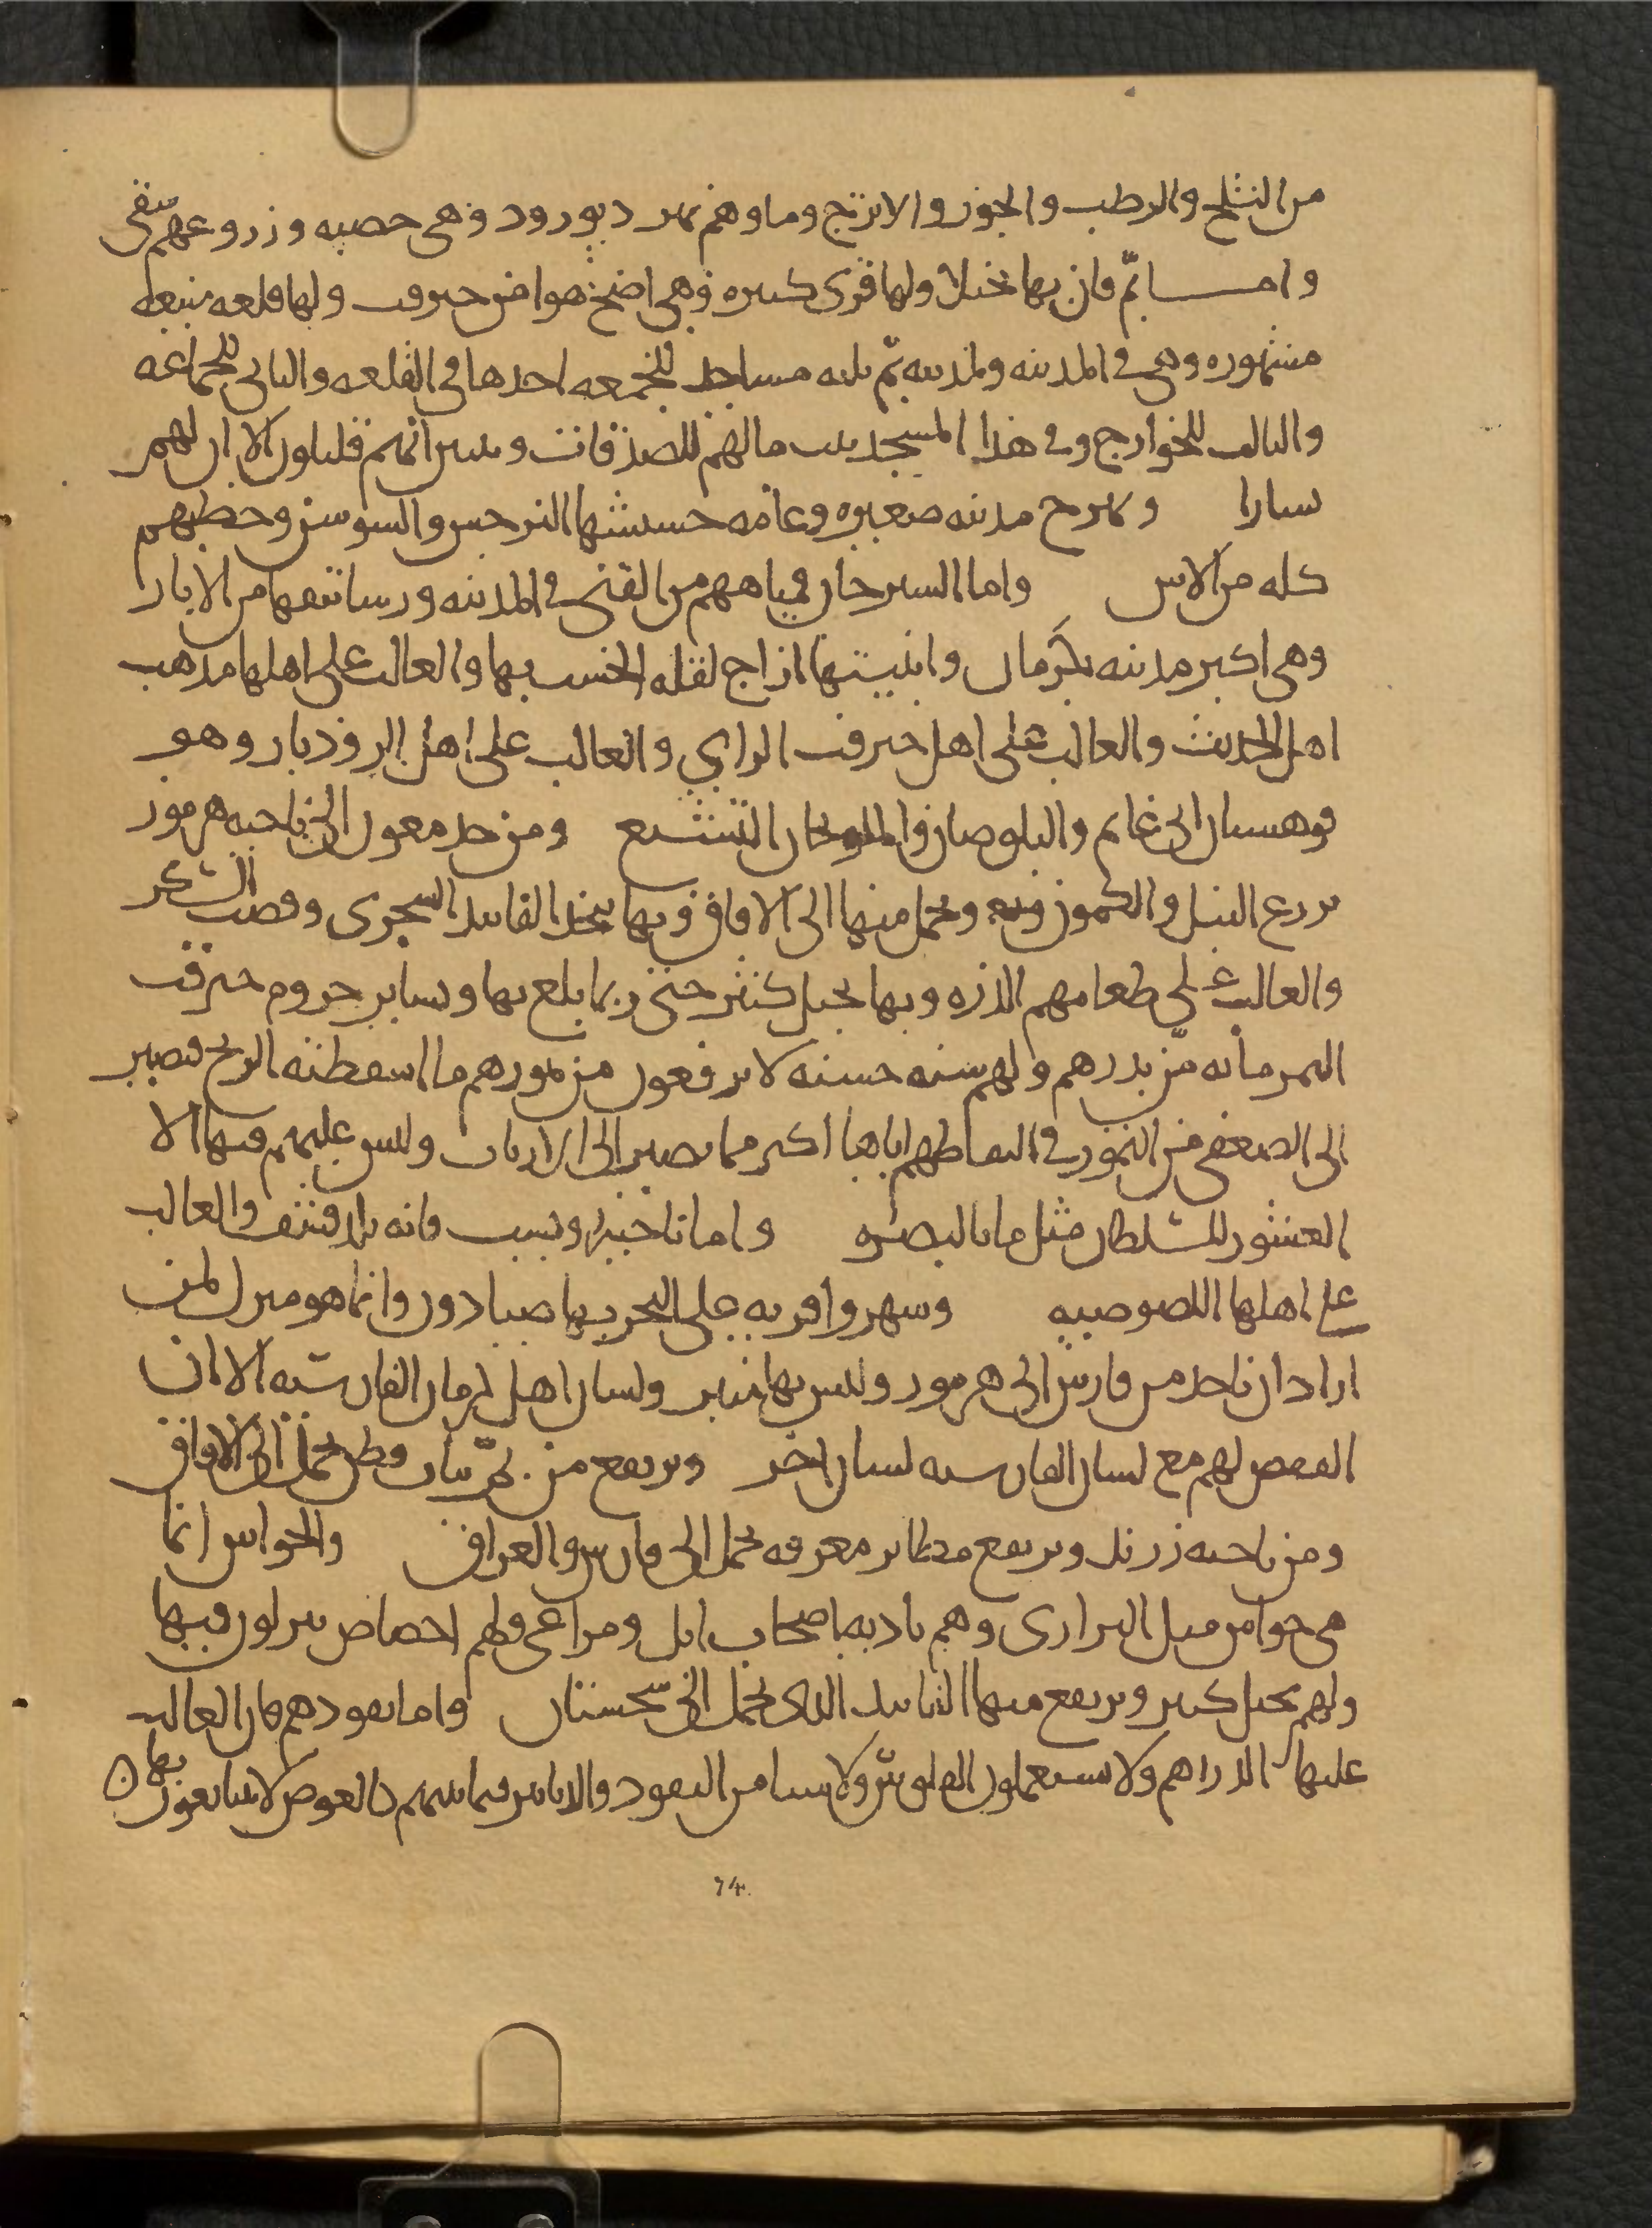 من الثلج والرطب والجوز والاترج وماوهم نهر ديورود وهي خصبه وزروعهم سقى
وامـــا بمّ فان بها نخيلا ولها قرى كثيره وهي اصح هوا من جيرفت ولها قلعه منيعه
مشهوره وهي في المدينه ولمدينه بمّ ثلثه مساجد للجمعه احدها في القلعه والثاني للجماعه
والثالث للخوارج وفي هذا المسجد بيت مالهم للصدقات وشراتهم قليلون الا ان لهم
يسارا وبهرج مدينه صغيره وعامه حشيشها النرجس والسوسن وحطبهم
كله من الاس واما السيرجان فمياههم من القنى في المدينه ورساتيقها من الابار
وهي اكبر مدينه بكرمان وابنيتها ازاج لقله الخشب بها والغالب على اهلها مذهب
اهل الحديث والغالب على اهل جيرفت الراي والغالب على اهل الروذبار وهو
قوهستان ابي غانم والبلوصان والمنوجان التشيع ومن حد مغون الى ناحيه هرموز
يزرع النيل والكمون ويحمل منها الى الافاق وبها يتخذ الفانيذ السجزى وقصب السكر
والغالب على طعامهم الذره وبها نخيل كثير حتى ربما بلغ بها وبساير جروم جيرفت
التمر مائه منّ بدرهم ولهم سنه حسنه لا يرفعون من تمورهم ما اسقطته الريح فيصير
الى الضعفى من التمور في التقاطهم اياها اكثر مما يصير الى الارباب وليس عليهم فيها الا
العشور للسلطان مثل ما بالبصره واما ناحيه وبست فانه بلد قشف والغالب
على اهلها اللصوصيه وسهروا قريه على البحر بها صيادون وانما هو منزل لمن
اراد ان ياخذ من فارس الى هرموز وليس بها منبر ولسان اهل كرمان الفارسيه الا ان
القفص لهم مع لسان الفارسيه لسان اخر ويرتفع من بمّ ثياب وطن يحمل الى الافاق
ومن ناحيه زرند ويرتفع بطاين معروفه يحمل الى فارس والعراق والخواش انما
هي خواش من قبل البرارى وهم باديه اصحاب ابل ومراعى ولهم اخصاص ينزلون فيها
ولهم نخيل كثير ويرتفع منها الفانيذ الذى يحمل الى سجستان واما نقودهم فان الغالب
عليها الدراهم ولا يستعملون الفلوس ولا شيا من النقود والدنانير فيما بينهم كالعرض لا يتبايعون بها ه
74